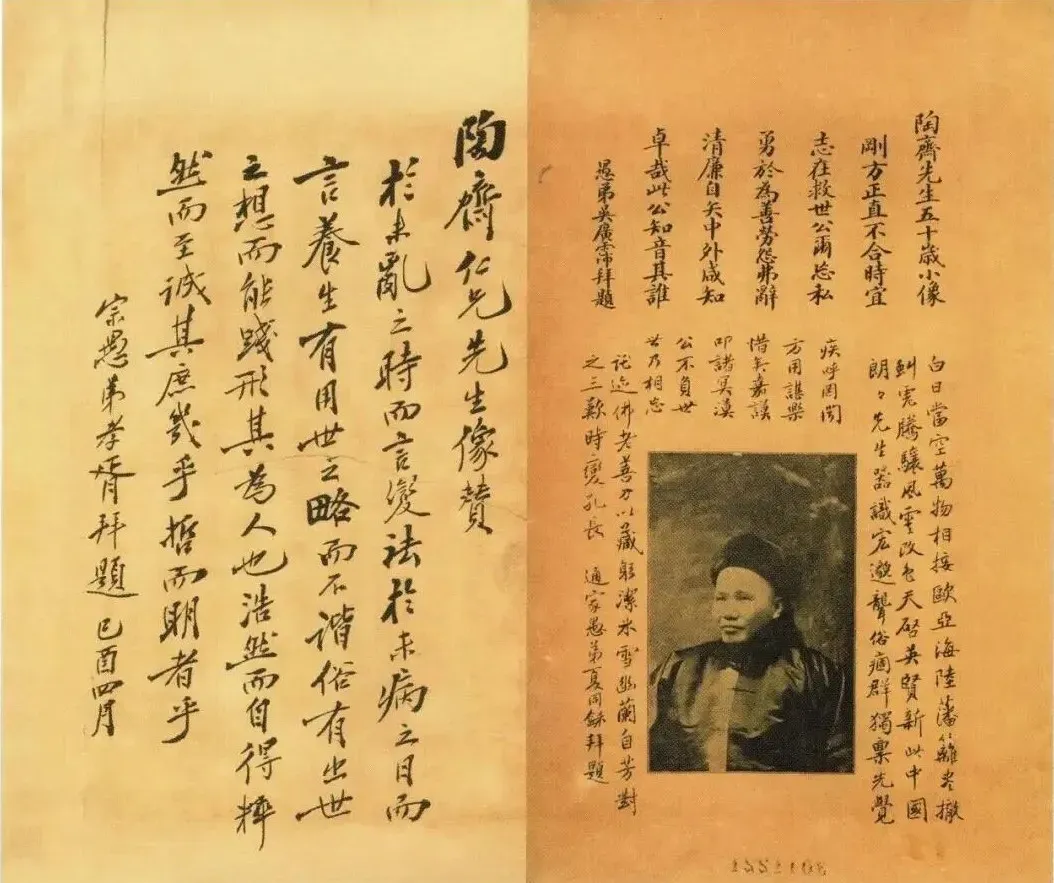 陶齋先生五十歲小像
剛方正直不合時宜
志在救世公爾忘私
勇於為善勞怨弗辭
清廉自矢中外咸知
卓哉此公知音其誰
愚弟吳廣霈拜題
白日當空萬物相接歐亞海陸藩籬盡撤
騰驤風雲改色天啓英賢新此中國
朗々先生器識宏邈聾俗痼群獨稟先覺
疾呼罔聞
方用諶樂
惜矣嘉謨
叩諸冥漠
公不負世
世乃相忘
託迹佛老善刀以藏躬潔冰雪幽蘭自芳對
之三歎時變孔長 通家愚弟夏同龢拜題
陶齋仁兄先生像贊
於未亂之時而言變法於未病之日而
言養生有用世之略而不諧俗有出世
之想而能踐形其為人也浩然而自得粹
然而至誠其庶幾乎哲而明者乎
宗愚弟孝胥拜題 己酉四月